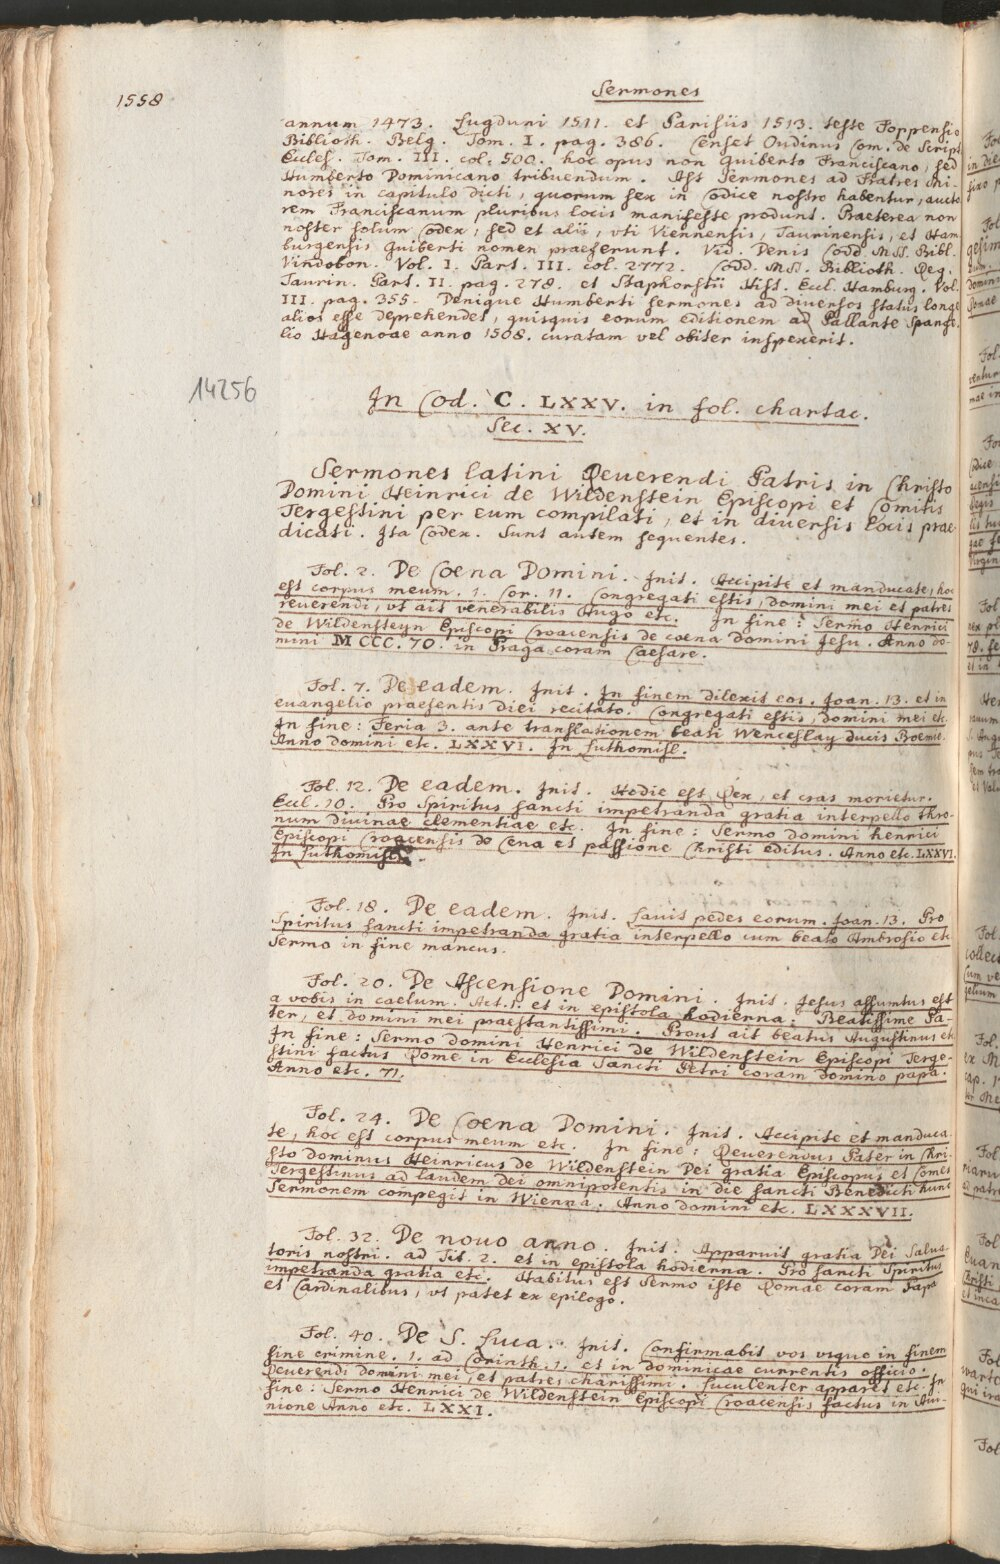 1558
Sermones
annum 1473. Lugduni 1511. et Parisiis 1513. teste Foppensio
Biblioth. Belg. Tom. I. pag. 386. Censet Oudinus Com. de Script
Eccles. Tom. III. col. 500. hoc opus non Guiberto Franciscano, sed
Humberto Dominicano tribuendum. Ast Sermones ad Fratres Mi-
nores in capitulo dicti, quorum sex in Codice nostro habentur, aucto
rem Franciscanum pluribus locis manifeste produnt. Praeterea non
noster solum Codex, sed et alii, vti Viennensis, Taurinensis, et Ham
burgensis Guiberti nomen praeferunt. Vid. Denis Codd. MSS. Bibl.
Vindobon. Vol. I. Part. III. col. 2772. Codd. MSS. Biblioth. Reg.
Taurin. Part. II. pag. 278. et Staphorstii Hist. Eccl. Hamburg. Vol.
III. pag. 355. Denique Humberti sermones ad diuersos status longe
alios esse deprehendet, quisquis eorum editionem ad Pallante Spange
lio Hagenoae anno 1508. curatam vel obiter inspexerit.
14256
In Cod. C. LXXV. in fol. chartac.
Sec. XV.
Sermones latini Reuerendi Patris in Christo
Domini Heinrici de Wildenstein Episcopi et Comitis
Tergestini per eum compilati, et in diuersis locis prae-
dicati. Ita Codex. Sunt autem sequentes.
Fol. 2. De Coena Domini. Init. Accipite et manducate, hoc
est corpus meum. 1. Cor. 11. Congregati estis, domini mei et patres
reuerendi, vt ait venerabilis Hugo etc. In fine: Sermo Henrici
de Wildensteyn Episcopi Croacensis de coena domini Jesu. Anno do-
mini MCCC. 70. in Praga coram Caesare.
Fol. 7. De eadem. Init. In finem dilexit eos. Joan. 13. et in
euangelio praesentis diei recitato. Congregati estis, domini mei etc.
In fine: Feria 3. ante translationem beati Wenceslay ducis Boemie.
Anno domini etc. LXXVI. In Luthomisl.
Fol. 12. De eadem. Init. Hodie est Rex, et cras morietur.
Eccl. 10. Pro Spiritus sancti impetranda gratia interpello thro-
num diuinae clementiae etc. In fine: Sermo domini henrici
Episcopi Croacensis de Cena et passione Christi editus. Anno etc. LXXVI.
In Luthomisl.
Fol. 18. De eadem. Init. Lauit pedes eorum. Joan. 13. Pro
Spiritus sancti impetranda gratia interpello cum beato Ambrosio etc
Sermo in fine mancus.
Fol. 20. De Ascensione Domini. Init. Jesus assumtus est
a vobis in caelum. Act. 1. et in epistola hodierna: Beatissime Pa-
ter, et domini mei praestantissimi. Prout ait beatus Augustinus etc
In fine: Sermo domini Henrici de Wildenstein Episcopi Terge-
stini factus Rome in Ecclesia Sancti Petri coram domino papa.
Anno etc. 71.
Fol. 24. De Coena Domini. Init. Accipite et manduca
te, hoc est corpus meum etc. In fine: Reuerendus Pater in Chri-
sto dominus Heinricus de Wildenstein Dei gratia Episcopus et Comes
Tergestinus ad laudem dei omnipotentis in die sancti Benedicti hunc
Sermonem compegit in Wienna. Anno domini etc. LXXXVII.
Fol. 32. De nouo anno. Init. Apparuit gratia Dei Salua-
toris nostri. ad Tit. 2. et in epistola hodierna. Pro sancti Spiritus
impetranda gratia etc. Habitus est Sermo iste Romae coram Papa
et Cardinalibus, vt patet ex epilogo.
Fol. 40. De S. Luca. Init. Confirmabit vos vsque in finem
sine crimine. 1. ad Corinth. 1. et in dominicae currentis officio.
Reuerendi domini mei, et patres charissimi. Luculenter apparet etc. In
fine: Sermo Henrici de Wildenstein Episcopi Croacensis factus in Aui-
nione Anno etc. LXXI.